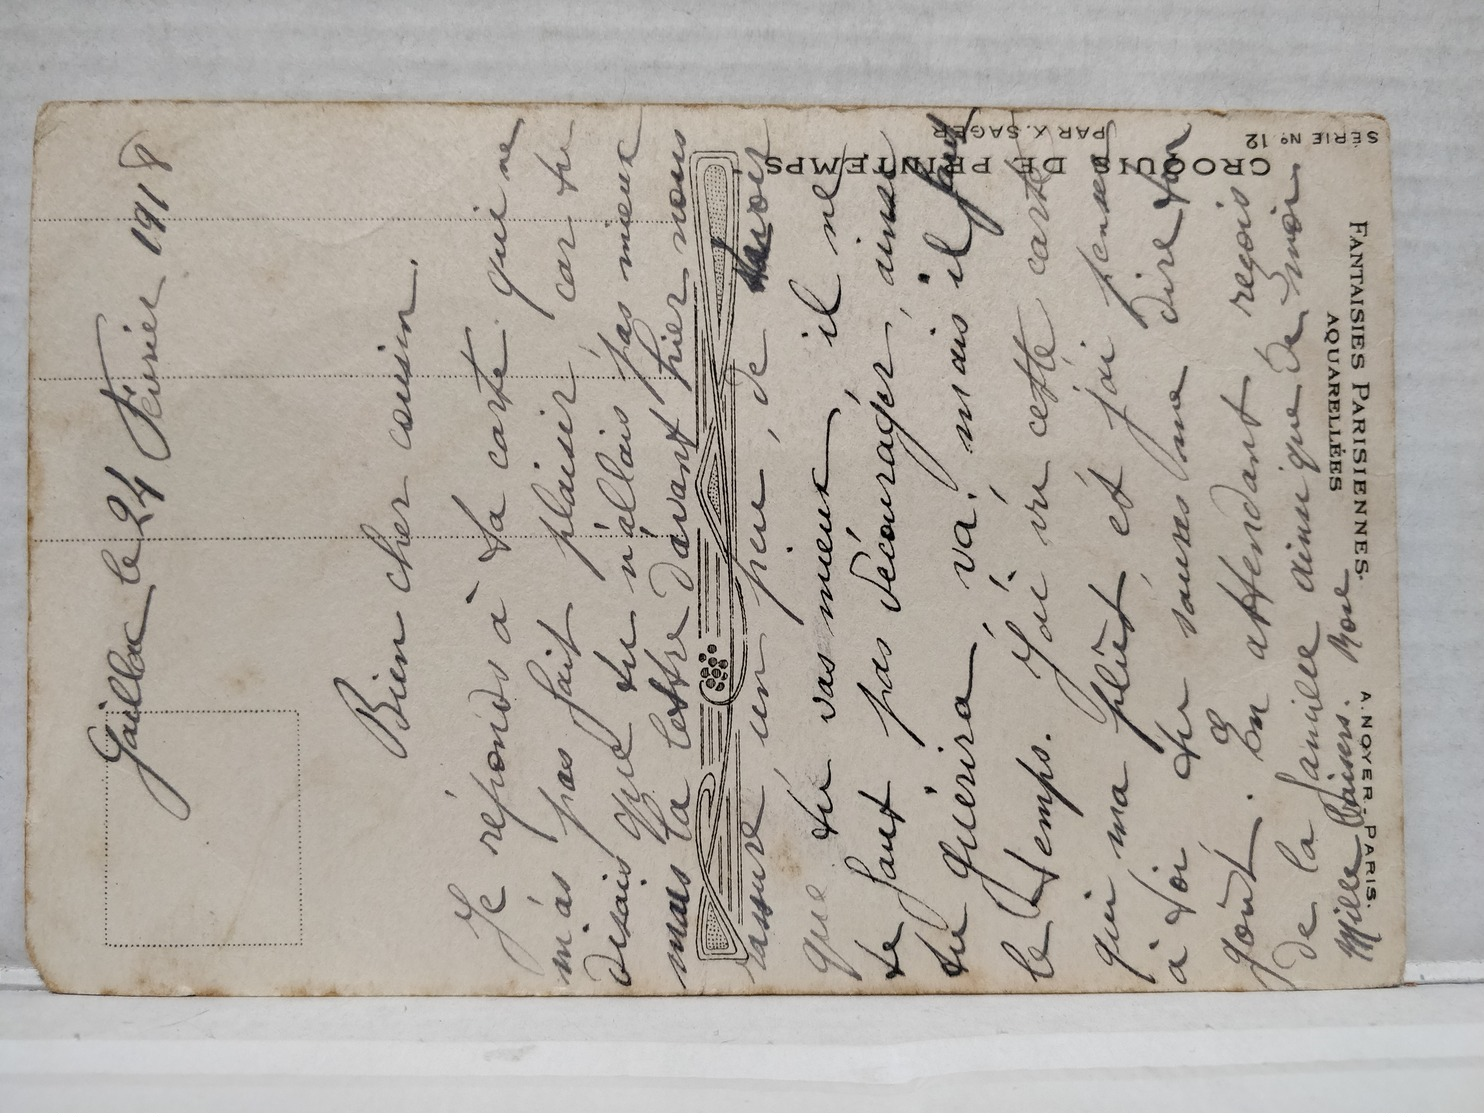 Gaillac le 24 Fevrier 1918
Bien cher cousin.
Je réponds à ta carte qui ne
m'as pas fait plaisir, car tu
disais que tu n'allais pas mieux
mais ta lettre d'avant hier nous
rassure un peu, de savoir
que tu vas mieux il ne
te faut pas décourager, ainsi
tu guerira va! mais il faut
le temps. J'ai vu cette carte
qui ma plût et j'ai pensé
à toi tu sauras me dire ton
goût. En attendant reçois
de la famille ainsi que de moi
Mille Baisers. Rose
CROQUIS DE PRINTEMPS
PAR X. SAGER
SÉRIE No 12
FANTAISIES PARISIENNES.
AQUARELLÉES
A. NOYER. PARIS.